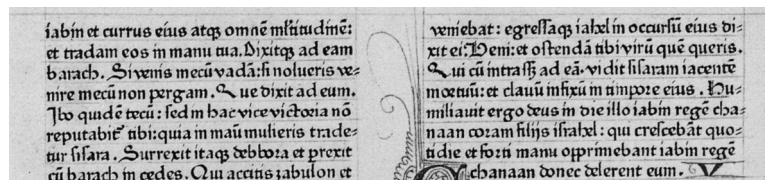 iabin et currus eius atqꝫ omnē mĺtitudinē:
et tradam eos in manu tua. Dixitqꝫ ad eam
barach. Si venis mecū vadā: si nolueris ve⸗
nire mecū non pergam. Que dixit ad eum.
Ibo quidē tecū: sed in hac vice victoria nō
reputabit᷑ tibi: quia in manū mulieris trade⸗
tur sisara. Surrexit itaqꝫ debbora et prexit
cū barach in cedes. Qui accitis zabulon et
veniebat: egressaqꝫ iahel in occursū eius di⸗
xit ei: Veni: et ostendā tibi virū quē queris.
Qui cū intrassꝫ ad eā. vidit sisaram iacentē
mortuū: et clauū infixū in timpore eius. Hu⸗
miliauit ergo deus in die illo iabin regē cha⸗
naan coram filijs israhel: qui crescebāt quo⸗
tidie et forti manu opprimebant iabin regē
chanaan donec delerent eum.